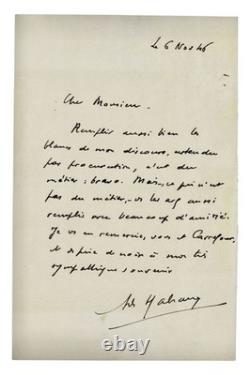 Le 6 Nov 46
Cher Monsieur.
Remplir aussi bien les
blancs de mon discours, entendu
par procuration, c'est du
métier : bravo. Mais, ce qui n'est
pas du métier, les avez aussi
remplis avec beaucoup d'amitié.
Je vs en remercie, vous et Carrefour,
et de croire à mon très
sympathique souvenir
© wh1.eu